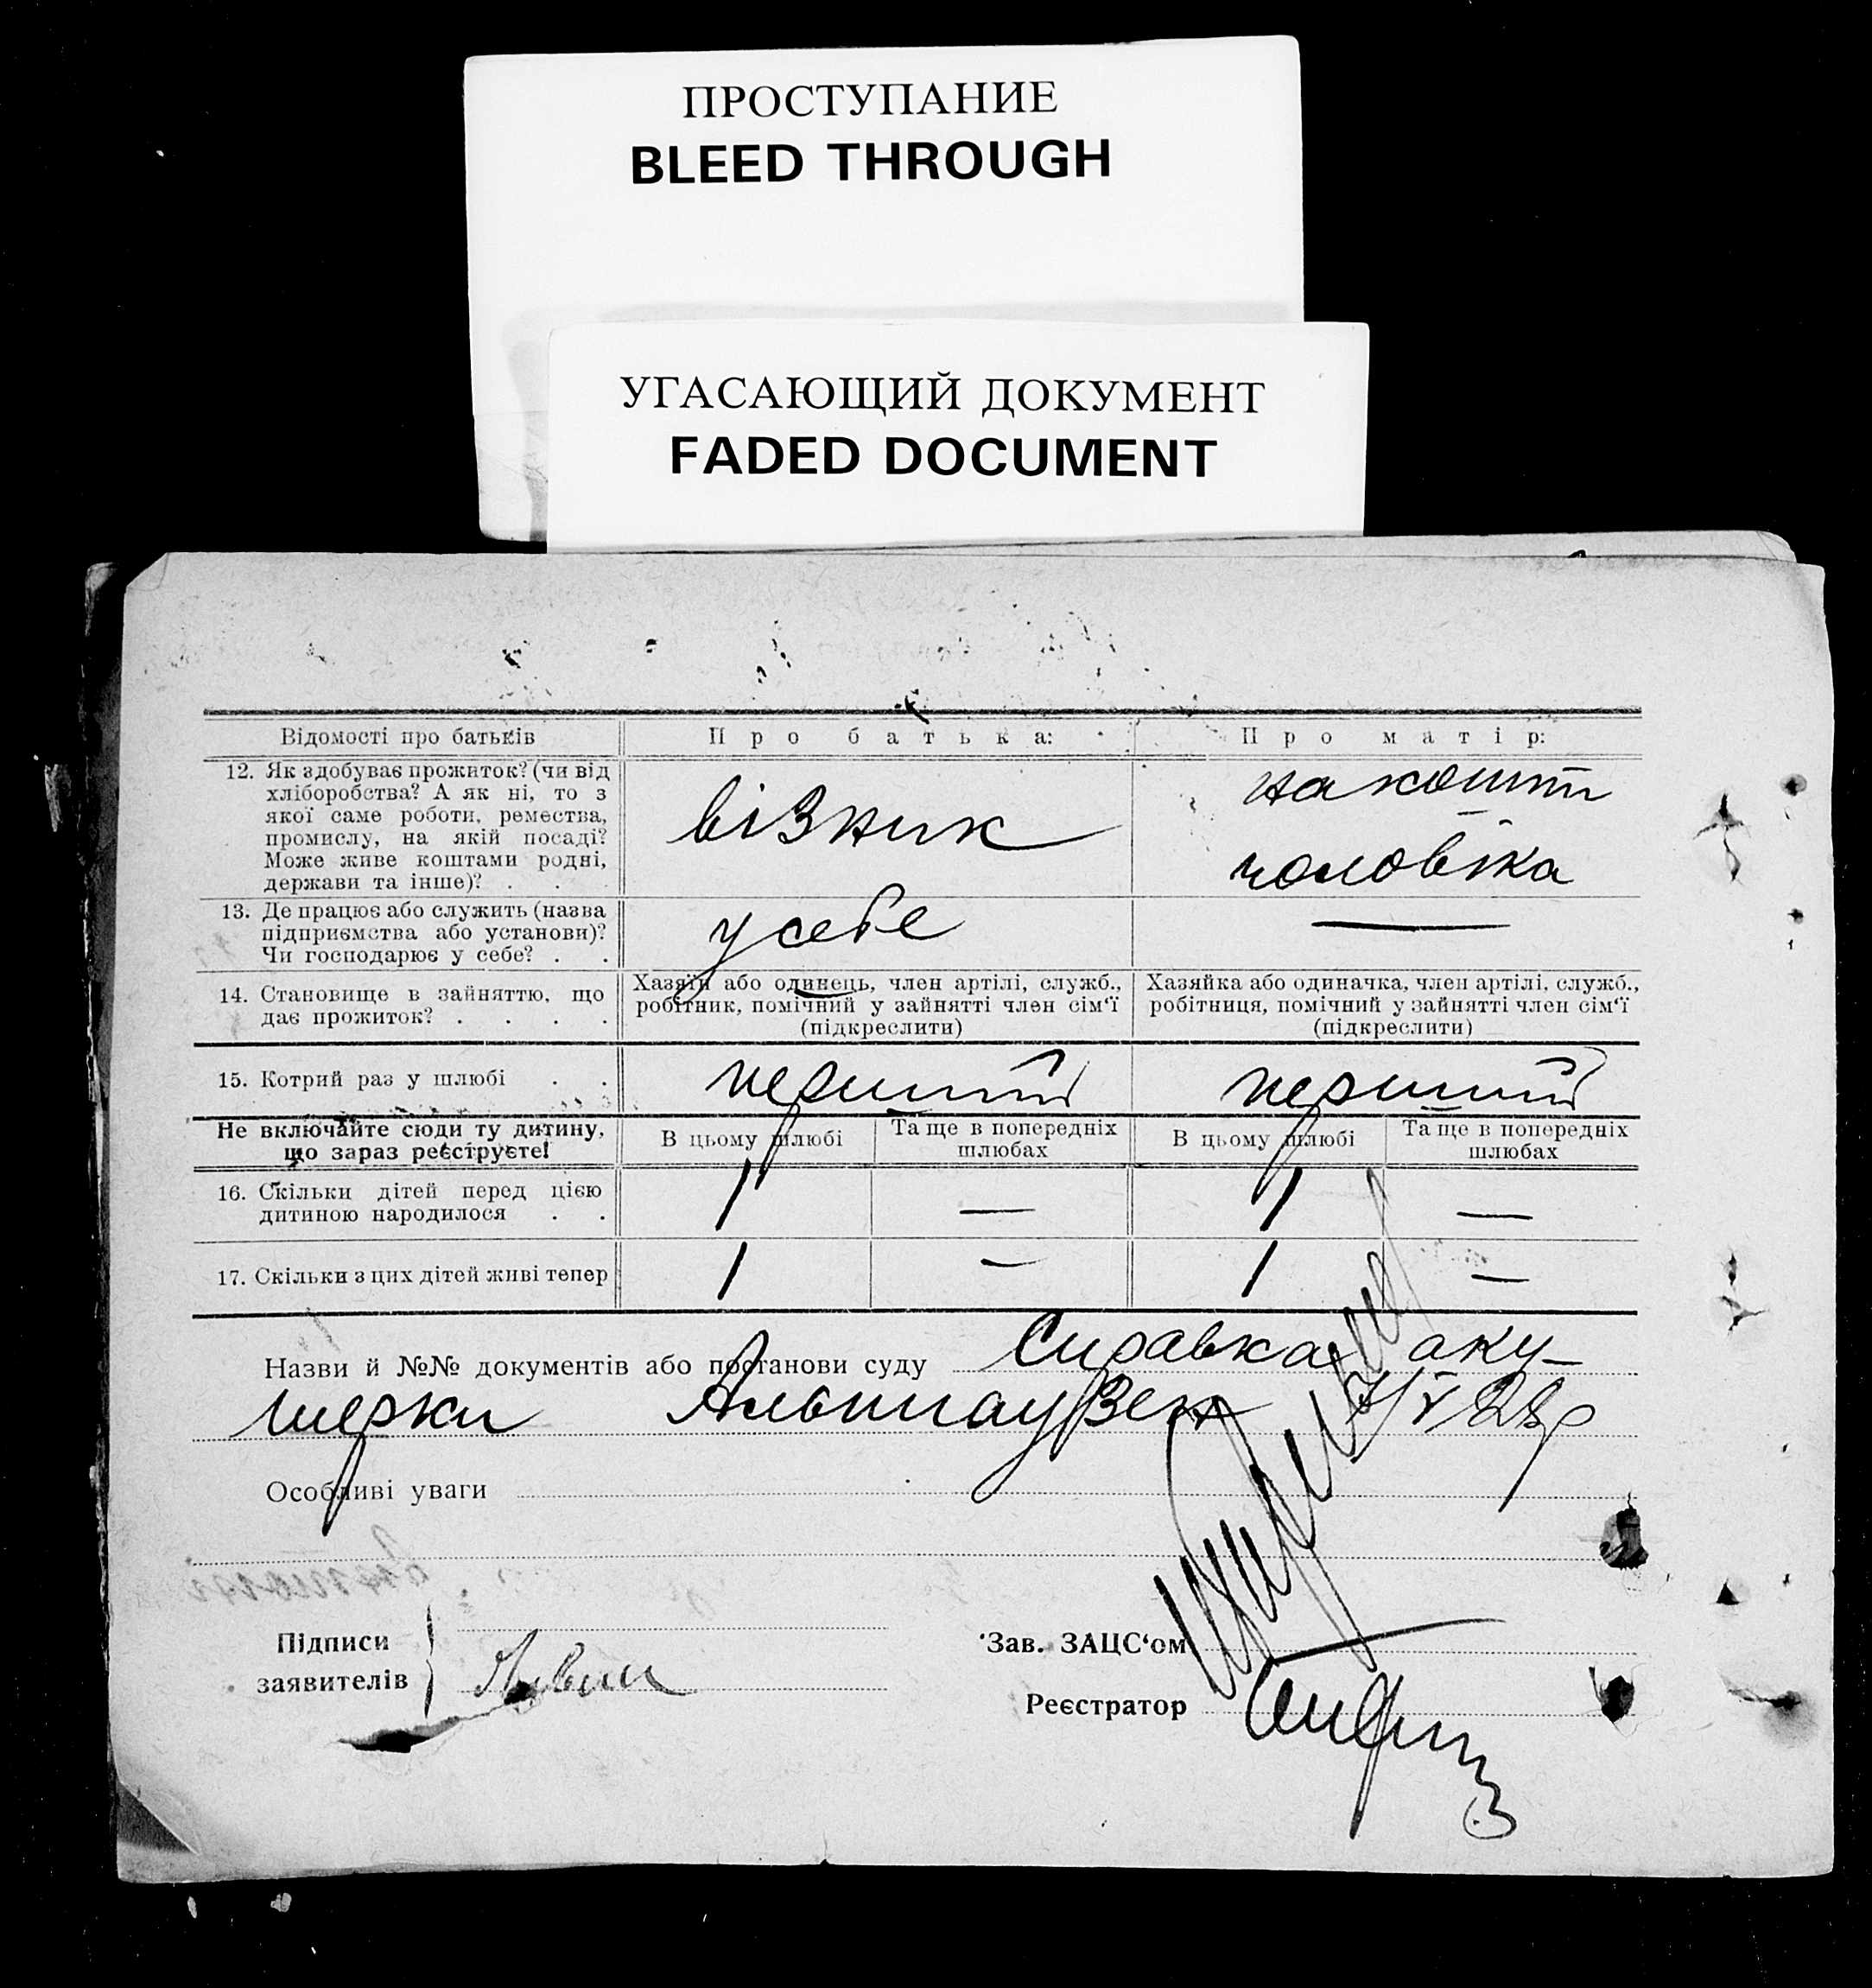 ПРОСТУПАНИЕ
BLEED THROUGH
УГАСАЮЩИЙ ДОКУМЕНТ
FADED DOCUMENT
Відомості про батьків
Про батька:
Про матір:
12. Як здобуває прожиток? (чи від
хліборобства? А як ні, то з
якої саме роботи, ремества,
промислу, на якій посаді?
Може живе коштами родні,
держави та інше)? . .
візник
на кошти
чоловіка
13. Де працює або служить (назва
підприємства або установи)?
Чи господарює у себе? . .
у себе
—
14. Становище в зайняттю, що
дає прожиток? . . . .
Хазяїн або одинець, член артілі, служб.,
робітник, помічний у зайнятті член сім'ї
(підкреслити)
Хазяйка або одиначка, член артілі, служб.,
робітниця, помічний у зайнятті член сім'ї
(підкреслити)
15. Котрий раз у шлюбі . .
перший
перший
Не включайте сюди ту дитину,
що зараз реєструєте!
В цьому шлюбі
Та ще в попередніх
шлюбах
В цьому шлюбі
Та ще в попередніх
шлюбах
16. Скільки дітей перед цією
дитиною народилося . .
1
—
1
—
17. Скільки з цих дітей живі тепер
1
—
1
—
Назви й №№ документів або постанови суду Справка аку-
шерки
Особливі уваги
Підписи
заявителів
Зав. ЗАЦС'ом
Реєстратор